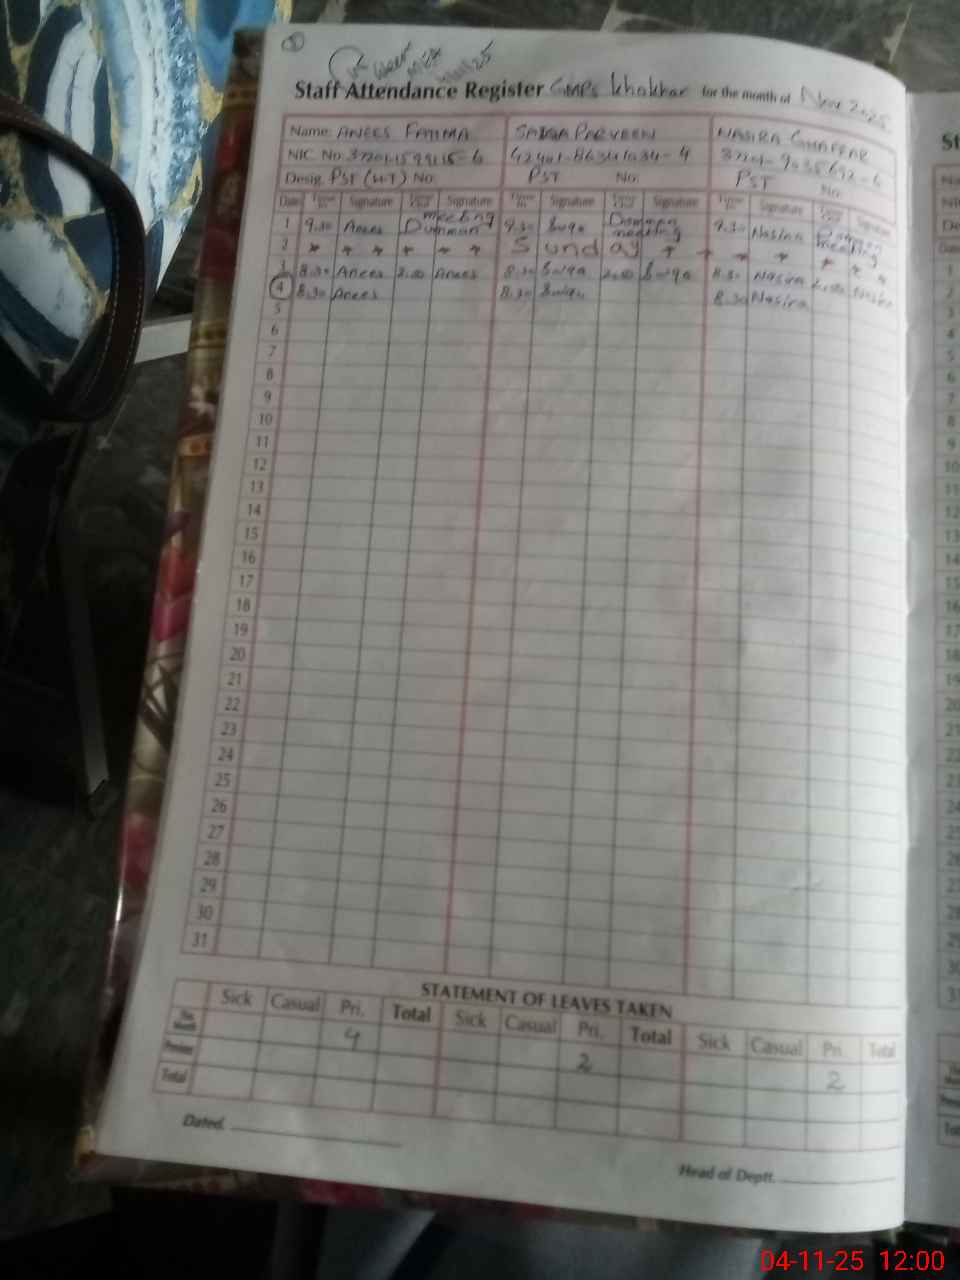 5
Staff Attendance Register GMPS Khokhar for the month of Nov 2025
Name: ANEES FATIMA SAIQA PARVEEN NASIRA GHAFFAR
NIC. No.
Desig. PST (H-T) No: PST No: PST No:
Date Signature Signature Signature Signature Signature Signature
1 9.30 Anees meeting 9.30 Saiqa meeting 9.30 Nasira meeting
2 * * * * * * Sunday * * * * * *
3 8.30 Anees 2.00 Anees 8.30 Saiqa 2.00 Saiqa 8.30 Nasira 2.00 Nasira
4 8.30 Anees 8.30 Saiqa 8.30 Nasira
5
6
7
8
9
10
11
12
13
14
15
16
17
18
19
20
21
22
23
24
25
26
27
28
29
30
31
STATEMENT OF LEAVES TAKEN
Sick Casual Pri. Total Sick Casual Pri. Total Sick Casual Pri. Total
This Month 4 2 2
Previous
Total
Dated.
Head of Deptt.
04-11-25 12:00